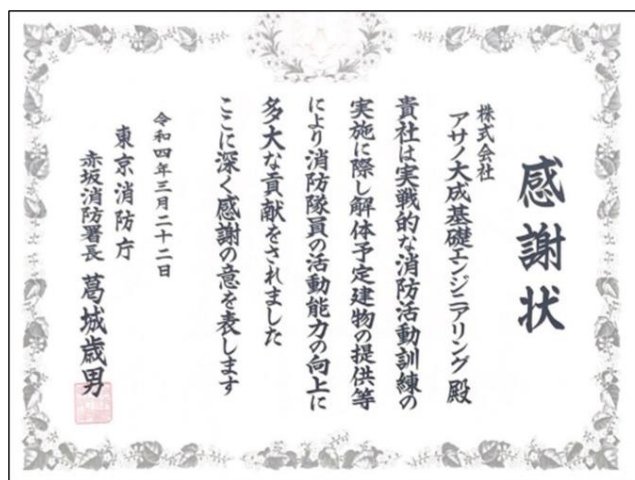 感謝状
株式会社
アサノ大成基礎エンジニアリング 殿
貴社は実戦的な消防活動訓練の
実施に際し解体予定建物の提供等
により消防隊員の活動能力の向上に
多大な貢献をされました
ここに深く感謝の意を表します
令和四年三月二十二日
東京消防庁
赤坂消防署長 葛城歳男